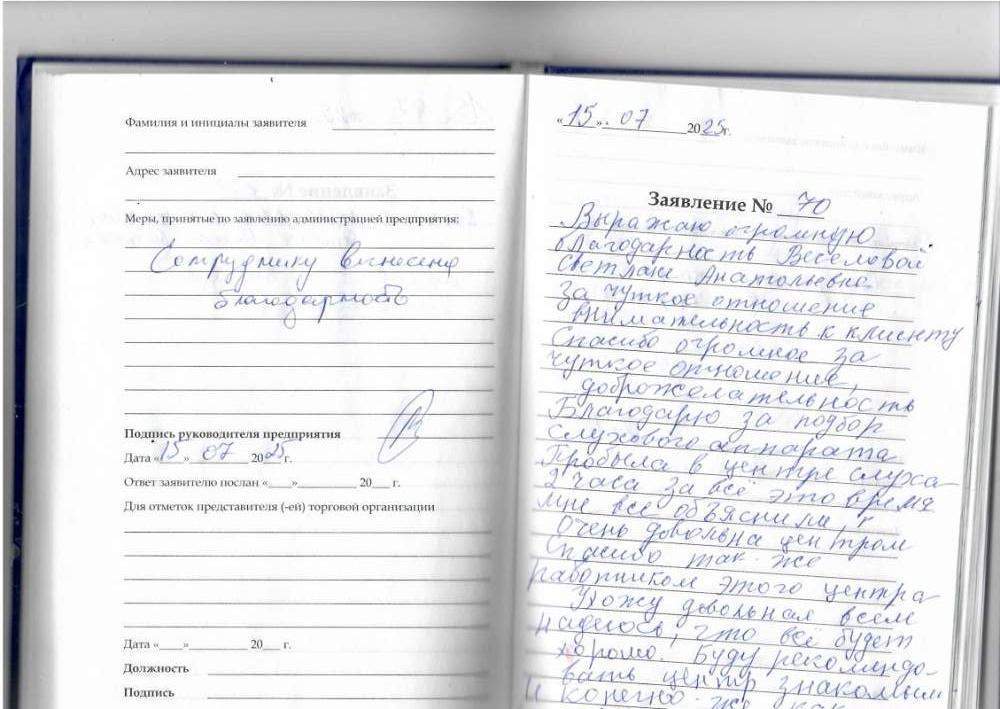 Фамилия и инициалы заявителя
Адрес заявителя
Меры, принятые по заявлению администрацией предприятия:
Сотруднику вынесена
благодарность
Подпись руководителя предприятия
Дата «15» 07 2025 г.
Ответ заявителю послан «___» ________ 20__ г.
Для отметок представителя (-ей) торговой организации
Дата «___» ________ 20__ г.
Должность
Подпись
«15». 07 2025г.
Заявление № 70
Выражаю огромную
благодарность Веселовой
Светлане Анатольевне
за чуткое отношение
внимательность к клиенту
Спасибо огромное за
чуткое отношение,
доброжелательность
Благодарю за подбор
слухового аппарата
Пробыла в центре слуха
2 часа за всё это время
мне все объяснили,
Очень довольна центром
Спасибо так-же
работником этого центра
Ухожу довольная всем
надеюсь, что всё будет
хорошо. Буду рекомендо-
вать центр знакомым
и конечно-же как